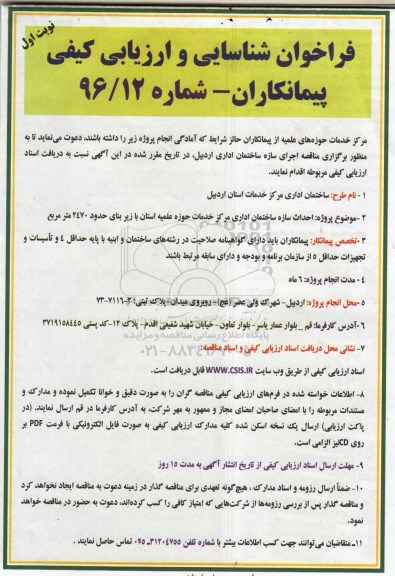 نوبت اول
فراخوان شناسایی و ارزیابی کیفی
پیمانکاران- شماره ۹۶/۱۲
مرکز خدمات حوزه‌های علمیه از پیمانکاران حائز شرایط که آمادگی انجام پروژه زیر را داشته باشند، دعوت می‌نماید تا به
منظور برگزاری مناقصه اجرای سازه ساختمان اداری اردبیل، در تاریخ مقرر شده در این آگهی نسبت به دریافت اسناد
ارزیابی کیفی مربوطه اقدام نمایند.
۱- نام طرح: ساختمان اداری مرکز خدمات استان اردبیل
۲-موضوع پروژه: احداث سازه ساختمان اداری مرکز خدمات حوزه علمیه استان با زیر بنای حدود ۲۴۷۰ متر مربع
۳-تخصص پیمانکار: پیمانکاران باید دارای گواهینامه صلاحیت در رشته‌های ساختمان و ابنیه با پایه حداقل ۴ و تأسیسات و
تجهیزات حداقل ۵ از سازمان برنامه و بودجه و دارای سابقه مرتبط باشند
۴- مدت انجام پروژه: ۶ ماه
۵- محل انجام پروژه: اردبیل- شهرک ولی عصر (عج)- روبروی میدان-پلاک ثبتی: ۲-۷۱۱۶-۷۳
۶-آدرس کارفرما: قم _ بلوار عمار یاسر- بلوار تعاون- خیابان شهید شفیعی اقدم- پلاک ۱۲-کد پستی ۳۷۱۹۱۵۸۴۴۵
۷- نشانی محل دریافت اسناد ارزیابی کیفی و اسناد مناقصه:
اسناد ارزیابی کیفی از طریق وب سایت WWW.CSIS.IR قابل دریافت است.
۸- اطلاعات خواسته شده در فرم‌های ارزیابی کیفی مناقصه گران را به صورت دقیق و خوانا تکمیل نموده و مدارک و
مستندات مربوطه را با امضای صاحبان امضای مجاز و ممهور به مهر شرکت، به آدرس کارفرما در قم ارسال نمایند. (در
پاکت ارزیابی) ارسال یک نسخه اسکن شده کلیه مدارک ارزیابی کیفی به صورت فایل الکترونیکی با فرمت PDF بر
روی CDنیز الزامی است.
۹- مهلت ارسال اسناد ارزیابی کیفی از تاریخ انتشار آگهی به مدت ۱۵ روز
۱۰- ضمناً ارسال رزومه و اسناد مدارک ، هیچ‌گونه تعهدی برای مناقصه گذار در زمینه دعوت به مناقصه ایجاد نخواهد کرد
و مناقصه گذار پس از بررسی رزومه‌ها از شرکت‌هایی که امتیاز کافی را کسب کرده‌اند، دعوت به حضور در مناقصه خواهد
نمود.
۱۱- متقاضیان می‌توانند جهت کسب اطلاعات بیشتر با شماره تلفن ۳۱۲۰۴۷۵۵- ۰۲۵ تماس حاصل نمایند .